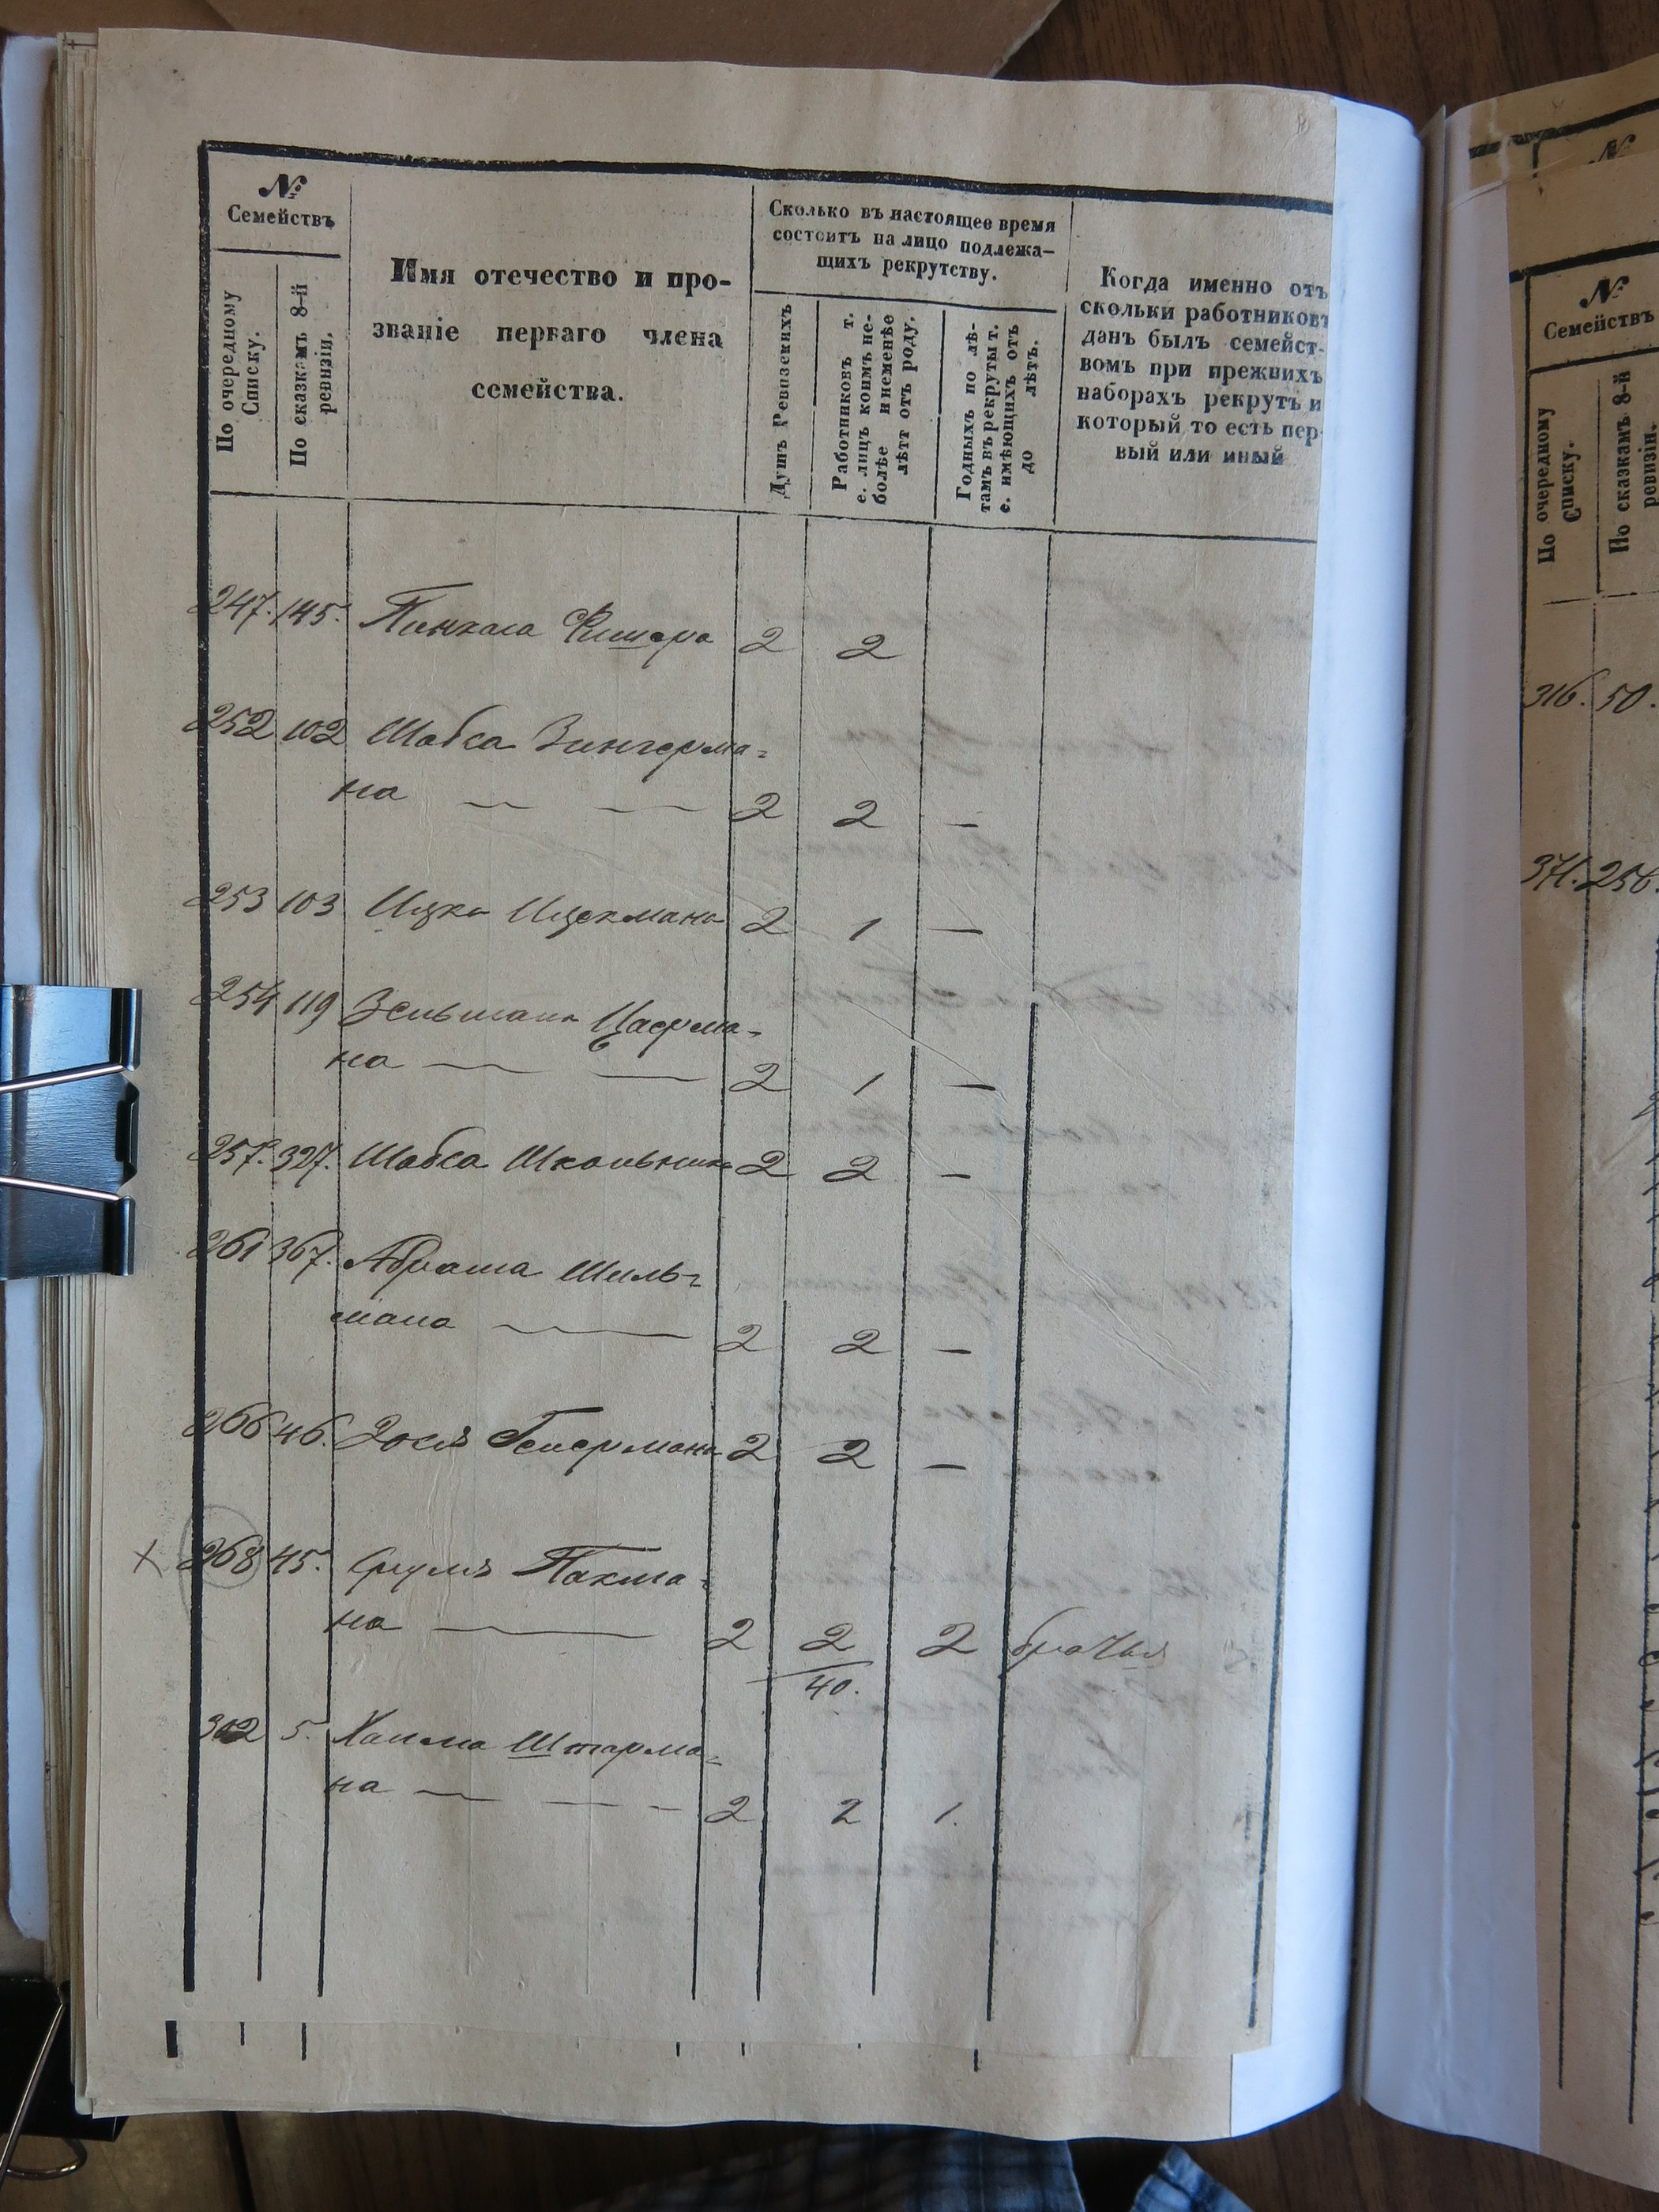 №
Семействъ
По очередному
Списку.
По сказкамъ 8-й
ревизіи.
Имя отечество и про-
званіе перваго члена
семейства.
Сколько въ настоящее время
состоитъ на лицо подлежа-
щихъ рекрутству.
Душъ Ревизскихъ
Работниковъ т.
е. лицъ коимъ не-
болѣе и неменѣе
лѣтт отъ роду.
Годныхъ по лѣ-
тамъ въ рекруты т.
е. имѣющихъ отъ
до лѣтъ.
Когда именно отъ
скольки работниковъ
данъ былъ семейст-
вомъ при прежнихъ
наборахъ рекрутъ и
который то есть пер-
вый или иный
247. 145. Пинхаса Фишера 2 2
252 102 Шабса Зингерма-
на 2 2 —
253 103 Ицка Ицекмана 2 1 —
254 119 Цасрма-
на 2 1 —
257. 327. Шабса Школьника 2 2 —
261 367. Абрама Шиль-
мана 2 2 —
266 46. 2 2 —
268 45. Сруля Пакма-
на 2 2 2 братья
40.
302 5. Хаима Штарма-
на 2 2 1.
№
Семействъ
По очередному
Списку.
По сказкамъ 8-й
ревизіи.
316. 50.
371. 256.